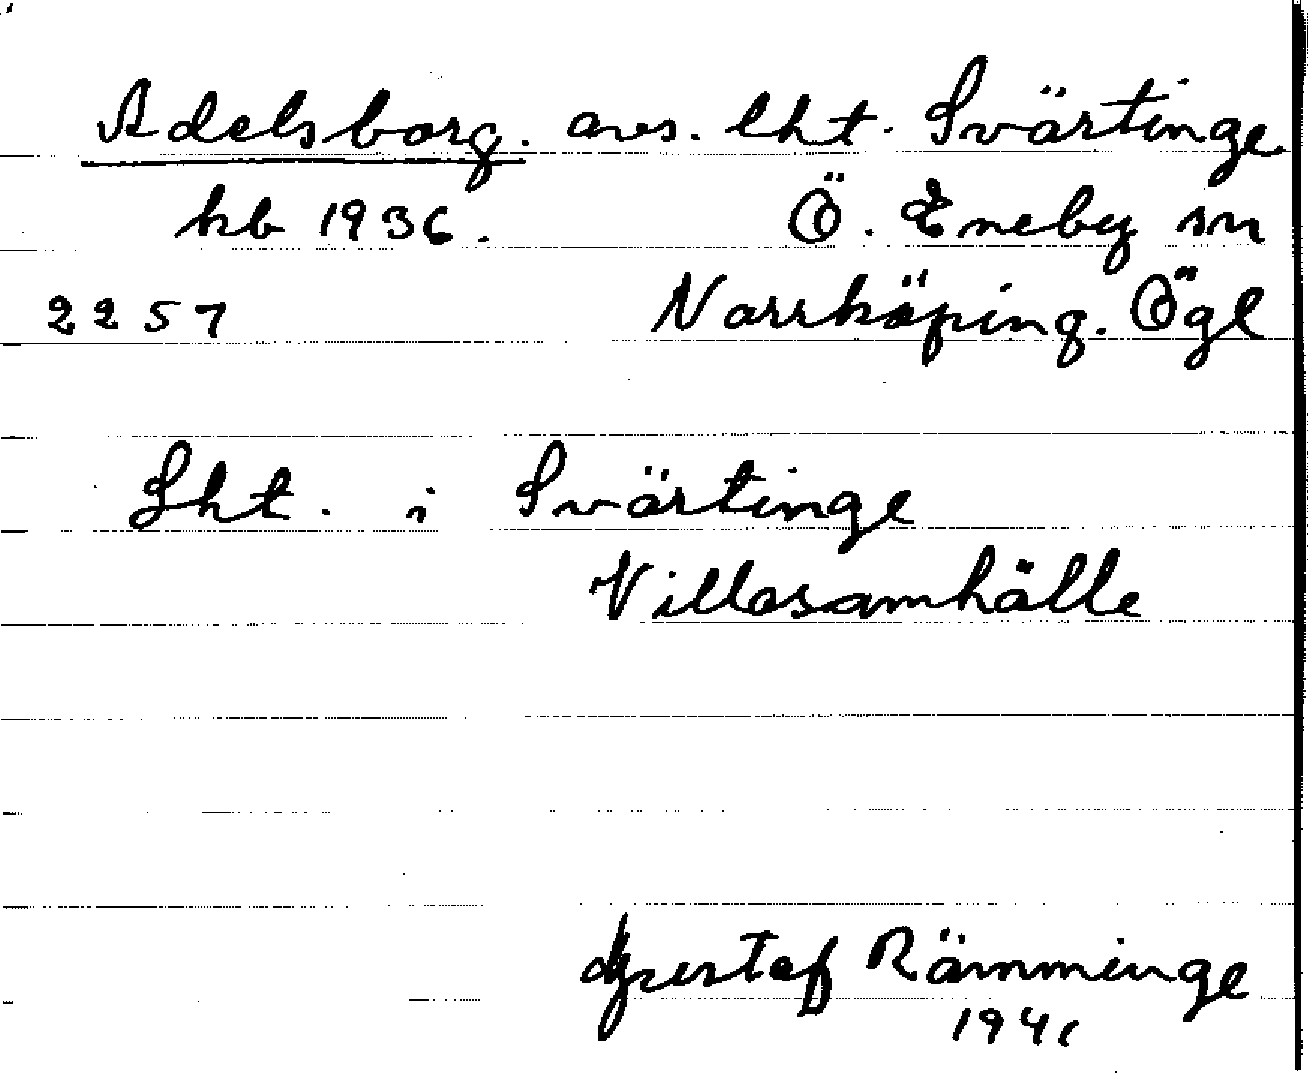 Adelsborg. avs. lht. Svärtinge
kb 1936. Ö. Eneby sn
2257 Norrköping. Ögl
Lht. i Svärtinge
Villasamhälle
Gustaf Rämminge
1941